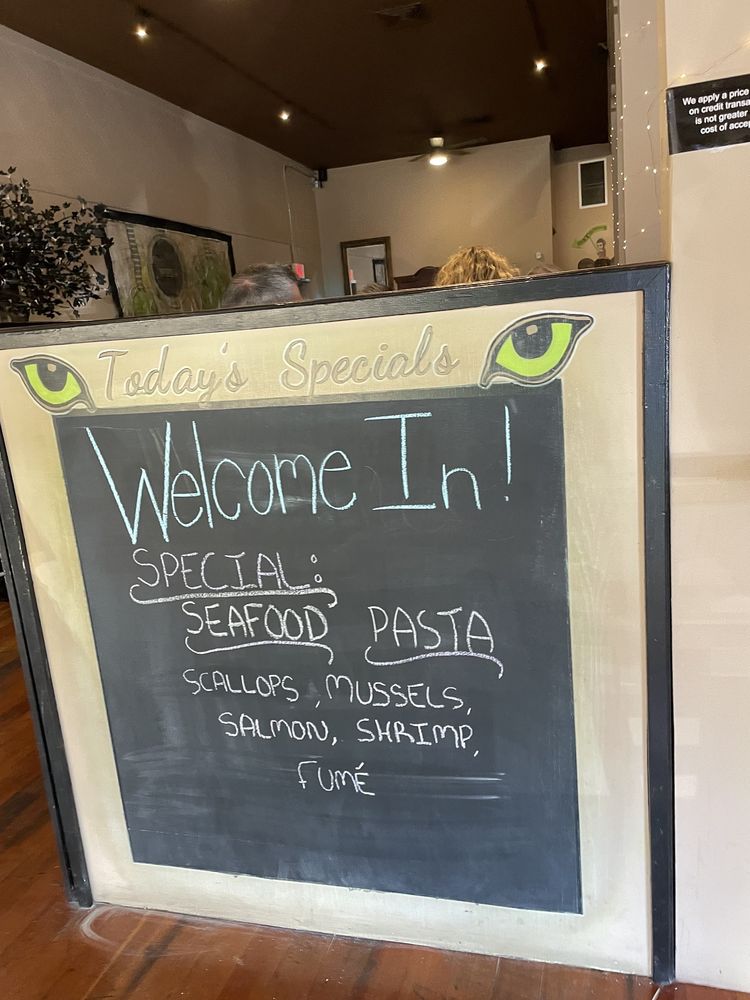 We apply a price
on credit transa
is not greater
cost of accep
Today's Specials
Welcome In!
SPECIAL:
SEAFOOD PASTA
SCALLOPS, MUSSELS,
SALMON, SHRIMP,
FUMÉ